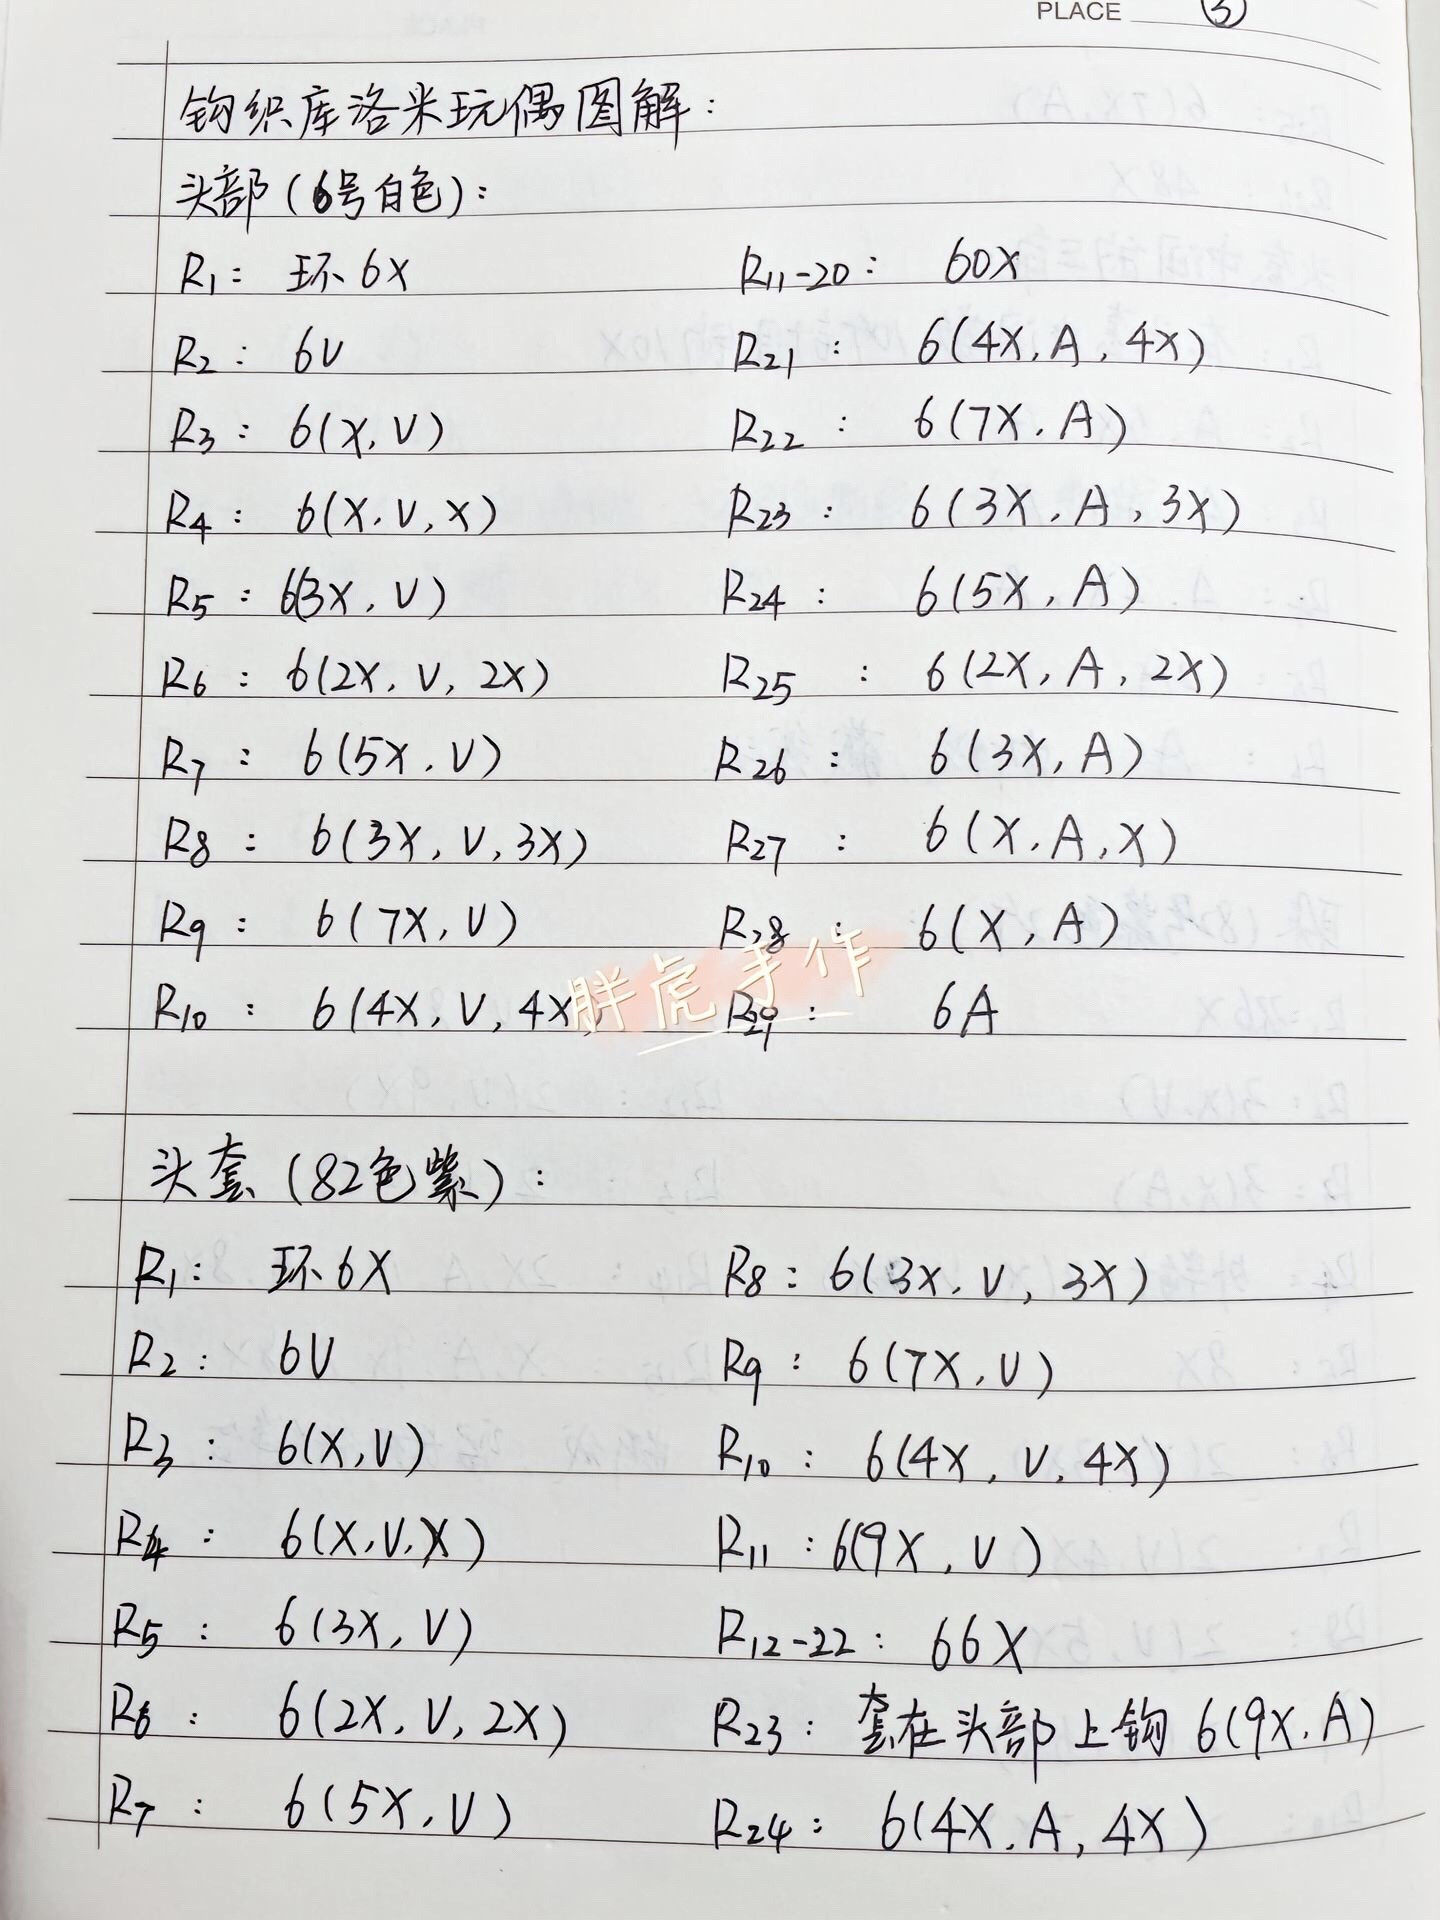 PLACE ③
钩织库洛米玩偶图解:
头部(6号白色):
R1: 环6X
R2: 6V
R3: 6(X,V)
R4: 6(X,V,X)
R5: 6(3X,V)
R6: 6(2X,V,2X)
R7: 6(5X,V)
R8: 6(3X,V,3X)
R9: 6(7X,V)
R10: 6(4X,V,4X)
R11-20: 60X
R21: 6(4X,A,4X)
R22: 6(7X,A)
R23: 6(3X,A,3X)
R24: 6(5X,A)
R25: 6(2X,A,2X)
R26: 6(3X,A)
R27: 6(X,A,X)
R28: 6(X,A)
R29: 6A
胖虎手作
头套(82色紫):
R1: 环6X
R2: 6V
R3: 6(X,V)
R4: 6(X,V,X)
R5: 6(3X,V)
R6: 6(2X,V,2X)
R7: 6(5X,V)
R8: 6(3X,V,3X)
R9: 6(7X,V)
R10: 6(4X,V,4X)
R11: 6(9X,V)
R12-22: 66X
R23: 套在头部上钩6(9X,A)
R24: 6(4X,A,4X)